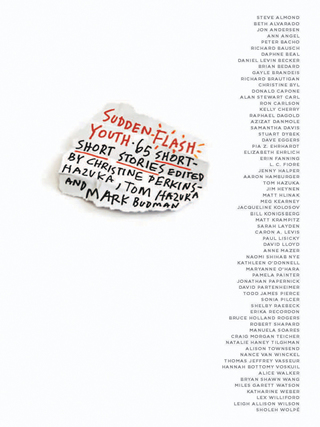 SUDDEN FLASH
YOUTH: 65 SHORT-
SHORT STORIES EDITED
BY CHRISTINE PERKINS-
HAZUKA, TOM HAZUKA
AND MARK BUDMAN
STEVE ALMOND
BETH ALVARADO
JON ANDERSEN
ANN ANGEL
PETER BACHO
RICHARD BAUSCH
DAPHNE BEAL
DANIEL LEVIN BECKER
BRIAN BEDARD
GAYLE BRANDEIS
RICHARD BRAUTIGAN
CHRISTINE BYL
DONALD CAPONE
ALAN STEWART CARL
RON CARLSON
KELLY CHERRY
RAPHAEL DAGOLD
AZIZAT DANMOLE
SAMANTHA DAVIS
STUART DYBEK
DAVE EGGERS
PIA Z. EHRHARDT
ELIZABETH EHRLICH
ERIN FANNING
L. C. FIORE
JENNY HALPER
AARON HAMBURGER
TOM HAZUKA
JIM HEYNEN
MATT HLINAK
MEG KEARNEY
JACQUELINE KOLOSOV
BILL KONIGSBERG
MATT KRAMPITZ
SARAH LAYDEN
CARON A. LEVIS
PAUL LISICKY
DAVID LLOYD
ANNE MAZER
NAOMI SHIHAB NYE
KATHLEEN O'DONNELL
MARYANNE O'HARA
PAMELA PAINTER
JONATHAN PAPERNICK
DAVID PARTENHEIMER
TODD JAMES PIERCE
SONIA PILCER
SHELBY RAEBECK
ERIKA RECORDON
BRUCE HOLLAND ROGERS
ROBERT SHAPARD
MANUELA SOARES
CRAIG MORGAN TEICHER
NATALIE HANEY TILGHMAN
ALISON TOWNSEND
NANCE VAN WINCKEL
THOMAS JEFFREY VASSEUR
HANNAH BOTTOMY VOSKUIL
ALICE WALKER
BRYAN SHAWN WANG
MILES GARETT WATSON
KATHARINE WEBER
LEX WILLIFORD
LEIGH ALLISON WILSON
SHOLEH WOLPÉ